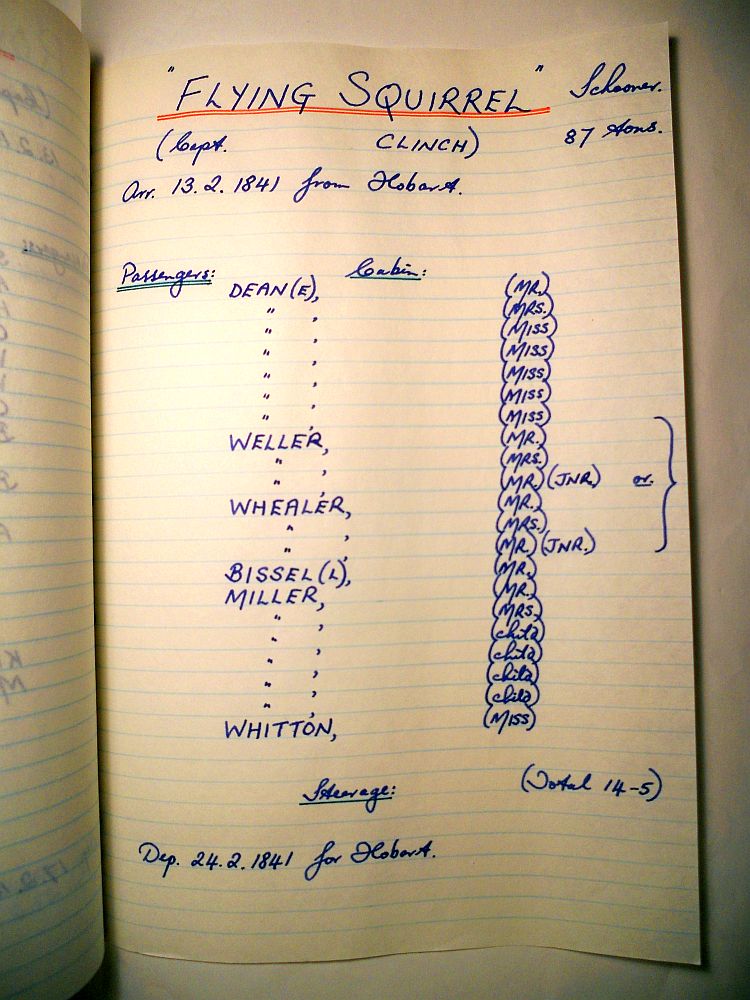 "FLYING SQUIRREL" Schooner.
(Capt. CLINCH) 87 tons.
Arr. 13.2.1841 from Hobart.
Passengers: Cabin:
DEAN(E), (MR.)
" , (MRS.)
" , (MISS)
" , (MISS)
" , (MISS)
" , (MISS)
" , (MISS)
WELLER, (MR.)
" , (MRS.)
" , (MR.) (JNR.) or.
WHEALER, (MR.)
" , (MRS.)
" , (MR.) (JNR.)
BISSEL(L), (MR.)
MILLER, (MR.)
" , (MRS.)
" , (child)
" , (child)
" , (child)
" , (child)
WHITTON, (MISS)
Steerage: (Total 14-5)
Dep. 24.2.1841 for Hobart.